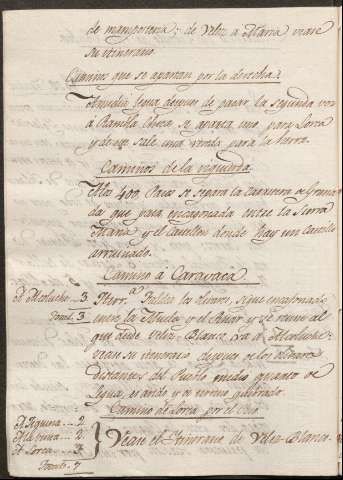 de mamposteria; de Velez a Maria vease
su itinerario
Caminos que se apartan por la derecha.
media legua despues de pasar la segunda vez
la Rambla Chica, se aparta uno para Lorca
y de este sale una vereda para la
Caminos de la izquierda
A los 400. Pasos se separa la carretera de Grana-
da que pasa encajonada entre la Sierra
Maria y el Castellon donde hay un Castillo
arruinado.
Camino a Caravaca.
A Morluche..3.
Total. 3
sigue encajonado
entre la Muela y el y se reune al
que desde Velez-Blanco va a
vease su itinerario, despues de los Olivares
distantes del Pueblo medio quarto de
Legua, es arido y es terreno quebrado.
Camino de Lorca por el Rio
2.
2.
A Lorca.... 3
Total.. 7
Vease el Itinerario de Velez-Blanco.